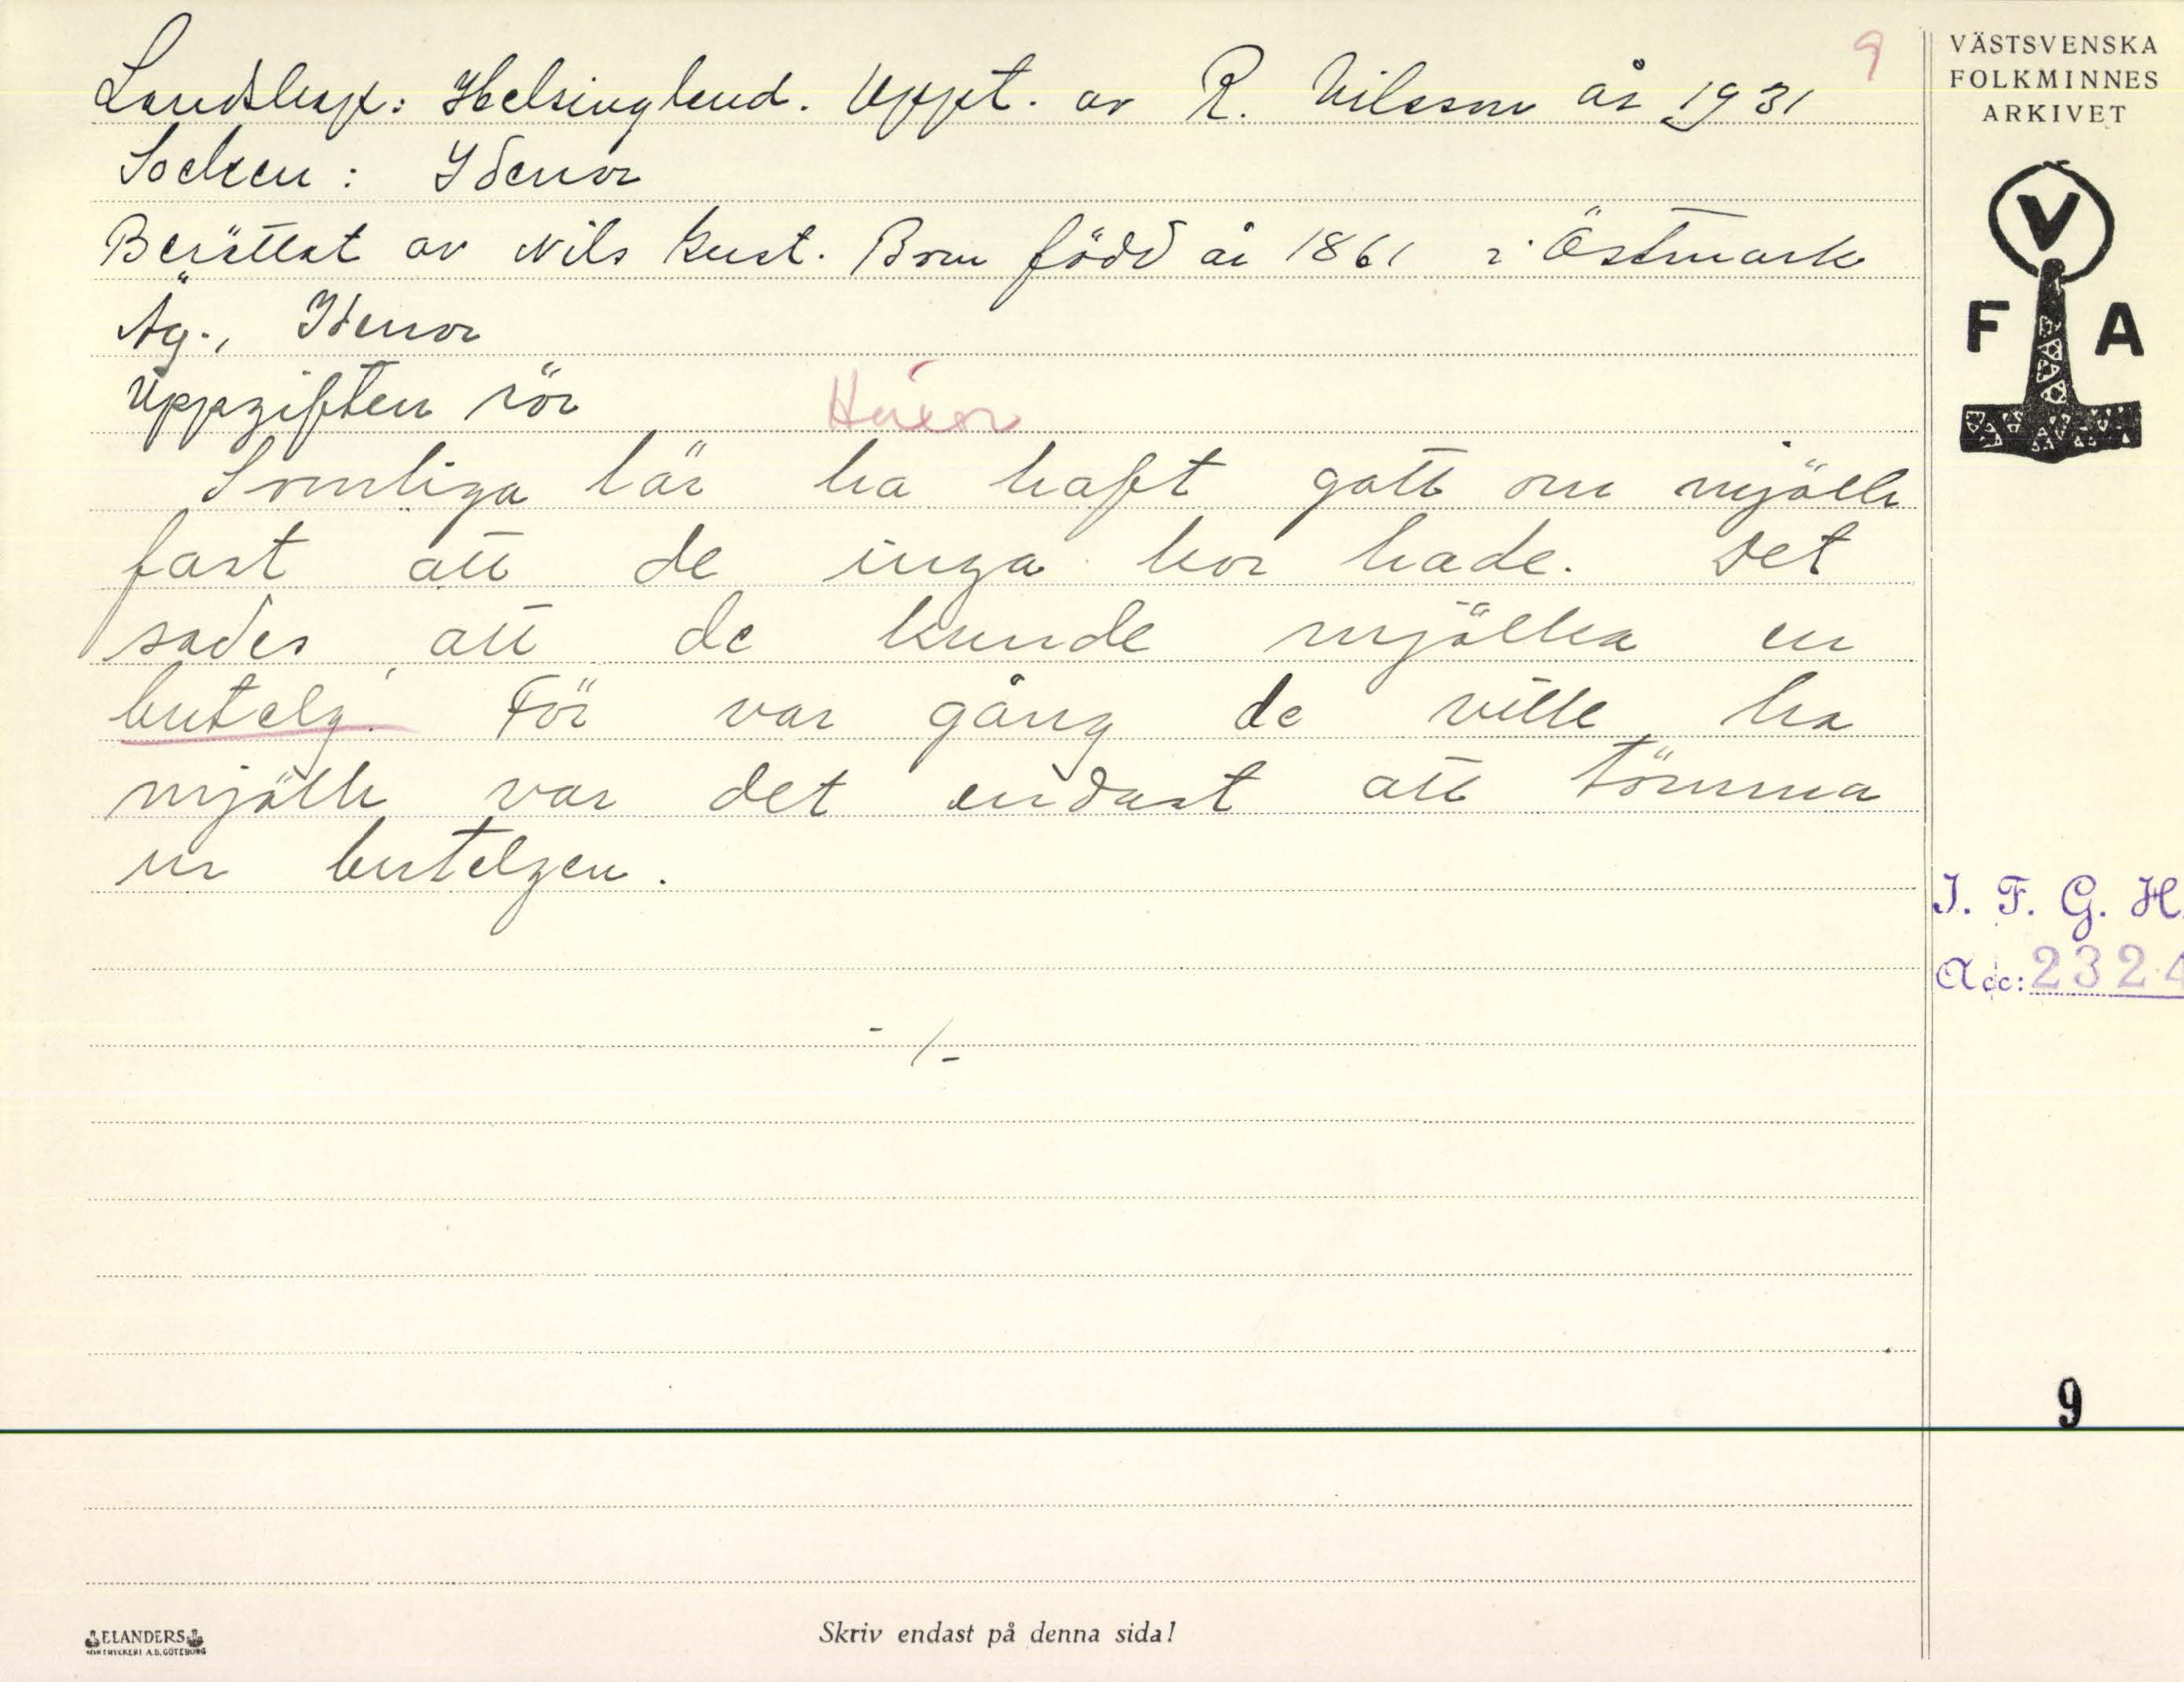 Landskap: Helsingland. Uppt. av R. Nilsson år 1931
9
Socken: Idenor
Berättat av Nils Kust. Bom född år 1861 i Östmark
Äg., Idenor
Uppgiften rör
Häxor
Somliga lär ha haft gott om mjölk
fast att de inga kor hade. Det
sades att de kunde mjölka en
butelg. För var gång de ville ha
mjölk var det endast att tömma
ur butelgen.
-/-
VÄSTSVENSKA
FOLKMINNES
ARKIVET
V
F A
I. F. G. H.
Acc: 2324
9
ELANDERS
Skriv endast på denna sida!